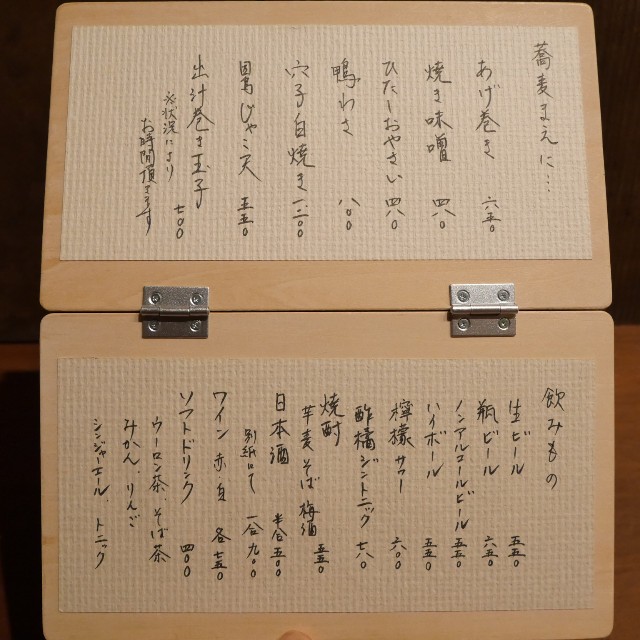 蕎麦まえに…
あげ巻き 六五〇
焼き味噌 四八〇
ひたしおやさい 四八〇
鴨わさ 八〇〇
穴子白焼き 一、二〇〇
じゃこ天 五五〇
出汁巻き玉子 七〇〇
※状況により
お時間頂きます
飲みもの
生ビール 五五〇
瓶ビール 六五〇
ノンアルコールビール 五五〇
ハイボール 五五〇
檸檬サワー 六〇〇
酢橘ジントニック 七八〇
焼酎
芋 麦 そば 梅酒 五五〇
日本酒 半合 五〇〇
別紙にて 一合 九〇〇
ワイン 赤、白 各七五〇
ソフトドリンク 四〇〇
ウーロン茶、そば茶
みかん、りんご
シンジャエール トニック